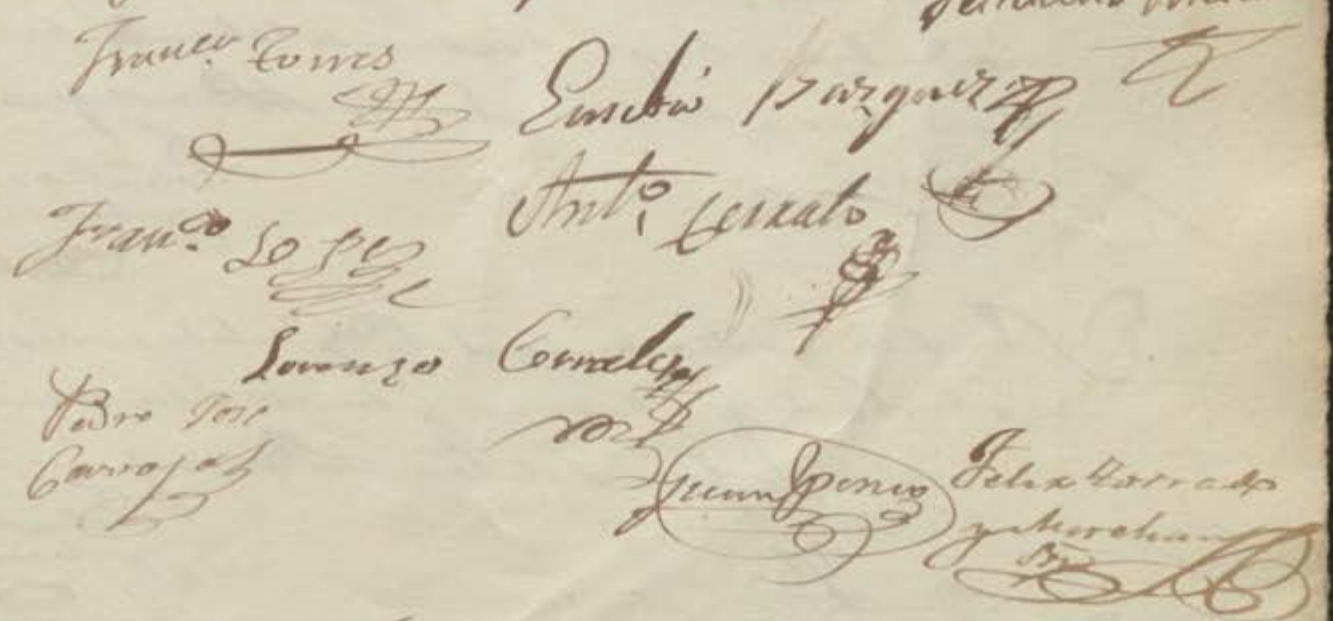 Franco Torres
Eusebio Bazquez
Franco Lopez
Anto Serrato
Lorenzo Gonzalez
Pedro Jose
Carvajal
Juan Osorio
Felix
y Merchan